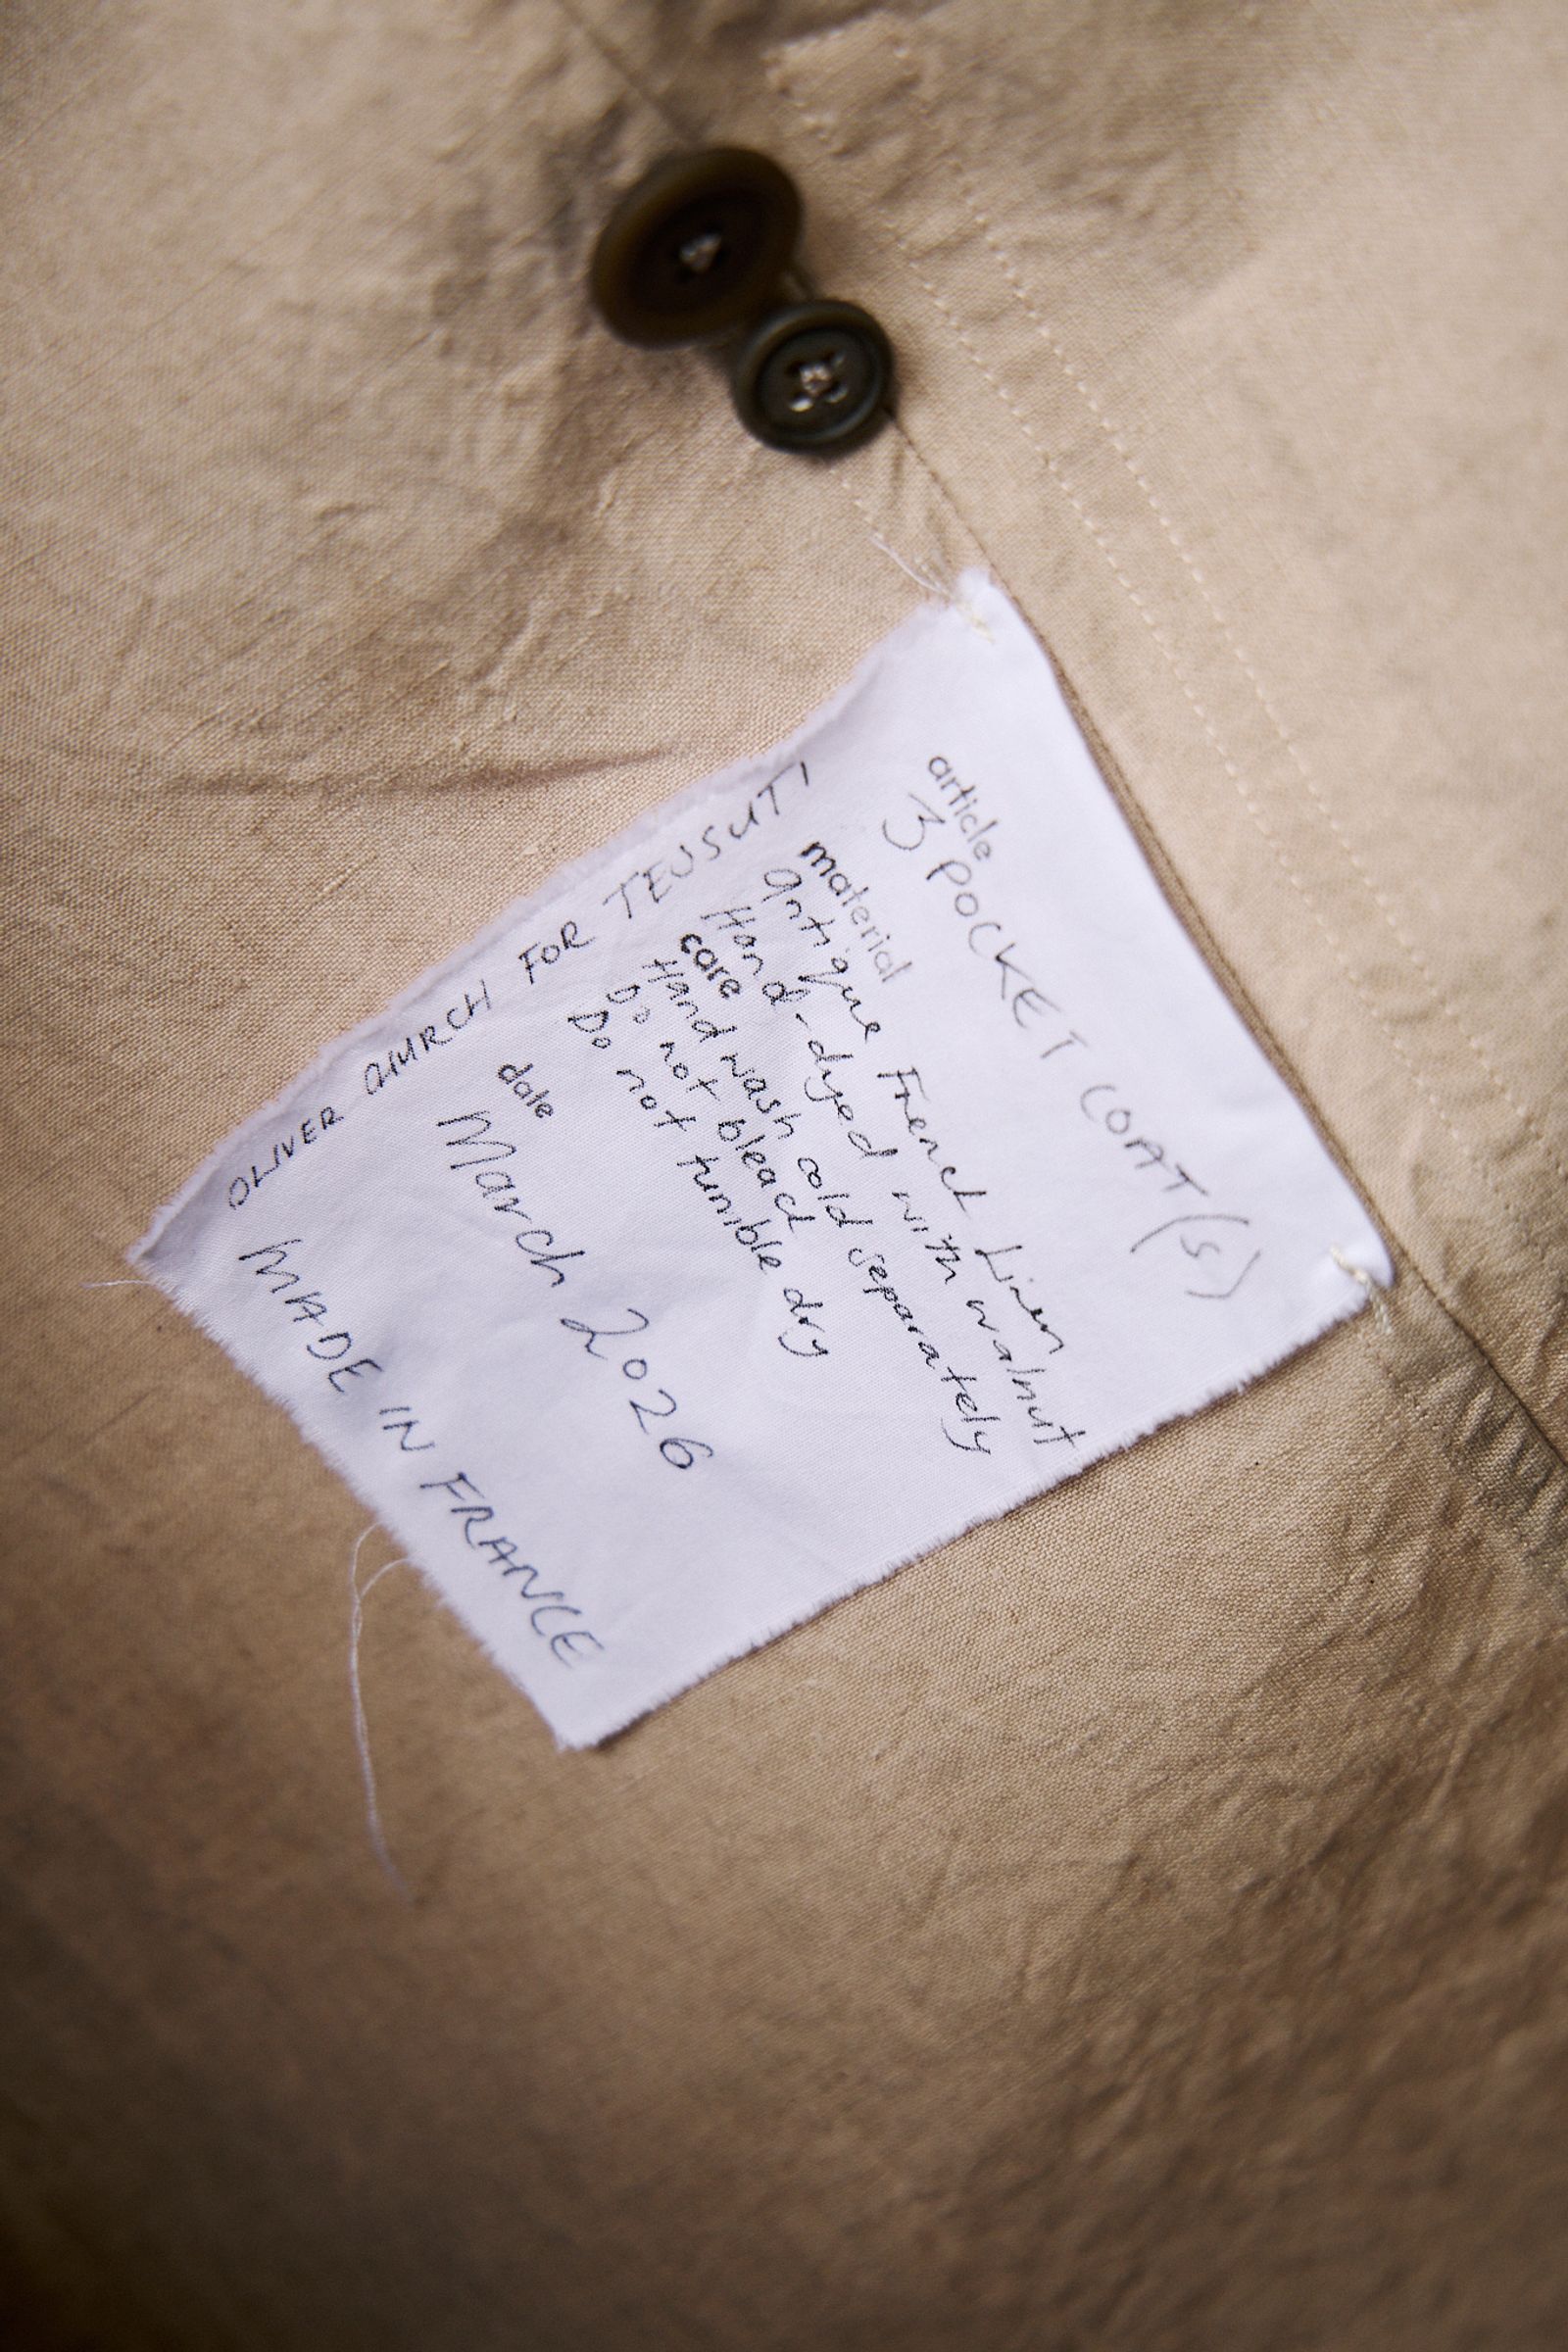 article
3 POCKET COAT (S)
material
Antique French Linen
Hand-dyed with walnut
care
Hand wash cold separately
Do not bleach
Do not tumble dry
date
March 2026
MADE IN FRANCE
OLIVER CHURCH FOR TEJSUT